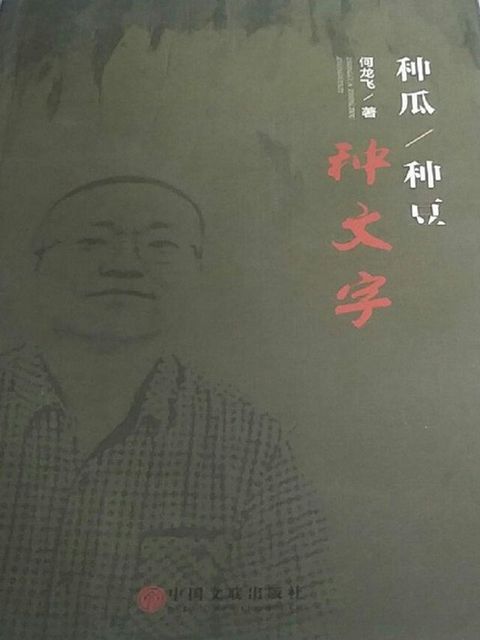 种瓜／种豆
种文字
何龙飞／著
中国文联出版社